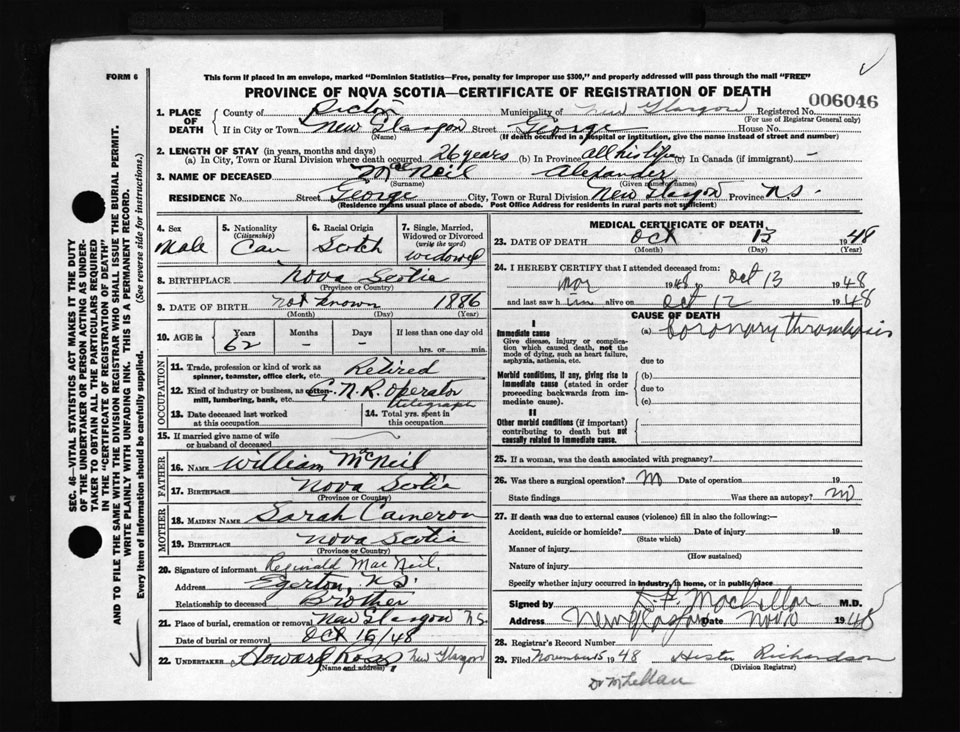 FORM 6
This form if placed in an envelope, marked "Dominion Statistics—Free, penalty for improper use $300," and properly addressed will pass through the mail "FREE"
PROVINCE OF NOVA SCOTIA—CERTIFICATE OF REGISTRATION OF DEATH
006046
1. PLACE OF DEATH
County of Pictou Municipality of New Glasgow Registered No.
(For use of Registrar General only)
If in City or Town New Glasgow Street George House No.
(Name) (If death occurred in a hospital or institution, give the name instead of street and number)
2. LENGTH OF STAY (in years, months and days)
(a) In City, Town or Rural Division where death occurred 26 years (b) In Province all his life (c) In Canada (if immigrant) -
3. NAME OF DECEASED McNeil Alexander
(Surname) (Given name or names)
RESIDENCE No. Street George City, Town or Rural Division New Glasgow Province N.S.
(Residence means usual place of abode. Post Office Address for residents in rural parts not sufficient)
4. Sex Male
5. Nationality (Citizenship) Can
6. Racial Origin Scotch
7. Single, Married, Widowed or Divorced (write the word) Widowed
8. BIRTHPLACE Nova Scotia
(Province or Country)
9. DATE OF BIRTH not known 1886
(Month) (Day) (Year)
10. AGE in Years 62 Months - Days - If less than one day old
hrs. or min.
OCCUPATION
11. Trade, profession or kind of work as spinner, teamster, office clerk, etc. Retired
12. Kind of industry or business, as cotton-mill, lumbering, bank, etc. C.N.R. Operator telegraph
13. Date deceased last worked at this occupation
14. Total yrs. spent in this occupation
15. If married give name of wife or husband of deceased
FATHER
16. NAME William McNeil
17. BIRTHPLACE Nova Scotia
(Province or Country)
MOTHER
18. MAIDEN NAME Sarah Cameron
19. BIRTHPLACE Nova Scotia
(Province or Country)
20. Signature of informant Reginald MacNeil.
Address Egerton, N.S.
Relationship to deceased Brother
21. Place of burial, cremation or removal New Glasgow N.S.
Date of burial or removal Oct 15/48
22. UNDERTAKER Howard Ross New Glasgow
(Name and address)
MEDICAL CERTIFICATE OF DEATH
23. DATE OF DEATH Oct 13 1948
(Month) (Day) (Year)
24. I HEREBY CERTIFY that I attended deceased from:
Mar 1948 to Oct 13 1948
and last saw him alive on Oct 12 1948
CAUSE OF DEATH
I
Immediate cause
Give disease, injury or complication which caused death, not the mode of dying, such as heart failure, asphyxia, asthenia, etc.
(a) Coronary thrombosis
due to
Morbid conditions, if any, giving rise to immediate cause (stated in order proceeding backwards from immediate cause).
(b)
due to
(c)
II
Other morbid conditions (if important) contributing to death but not causally related to immediate cause.
25. If a woman, was the death associated with pregnancy?
26. Was there a surgical operation? no Date of operation 19
State findings Was there an autopsy? no
27. If death was due to external causes (violence) fill in also the following:
Accident, suicide or homicide? Date of injury 19
(State which)
Manner of injury
(How sustained)
Nature of injury
Specify whether injury occurred in industry, in home, or in public place
Signed by D. F. MacLellan M.D.
Address New Glasgow Date Nov 10 1948
28. Registrar's Record Number
29. Filed November 15 1948 Hester Richardson
(Division Registrar)
Dr McLellan
SEC. 46—VITAL STATISTICS ACT MAKES IT THE DUTY
OF THE UNDERTAKER OR PERSON ACTING AS UNDERTAKER
TO OBTAIN ALL THE PARTICULARS REQUIRED
IN THE "CERTIFICATE OF REGISTRATION OF DEATH"
AND TO FILE THE SAME WITH THE DIVISION REGISTRAR WHO SHALL ISSUE THE BURIAL PERMIT.
WRITE PLAINLY WITH UNFADING INK. THIS IS A PERMANENT RECORD.
Every item of information should be carefully supplied. (See reverse side for instructions.)